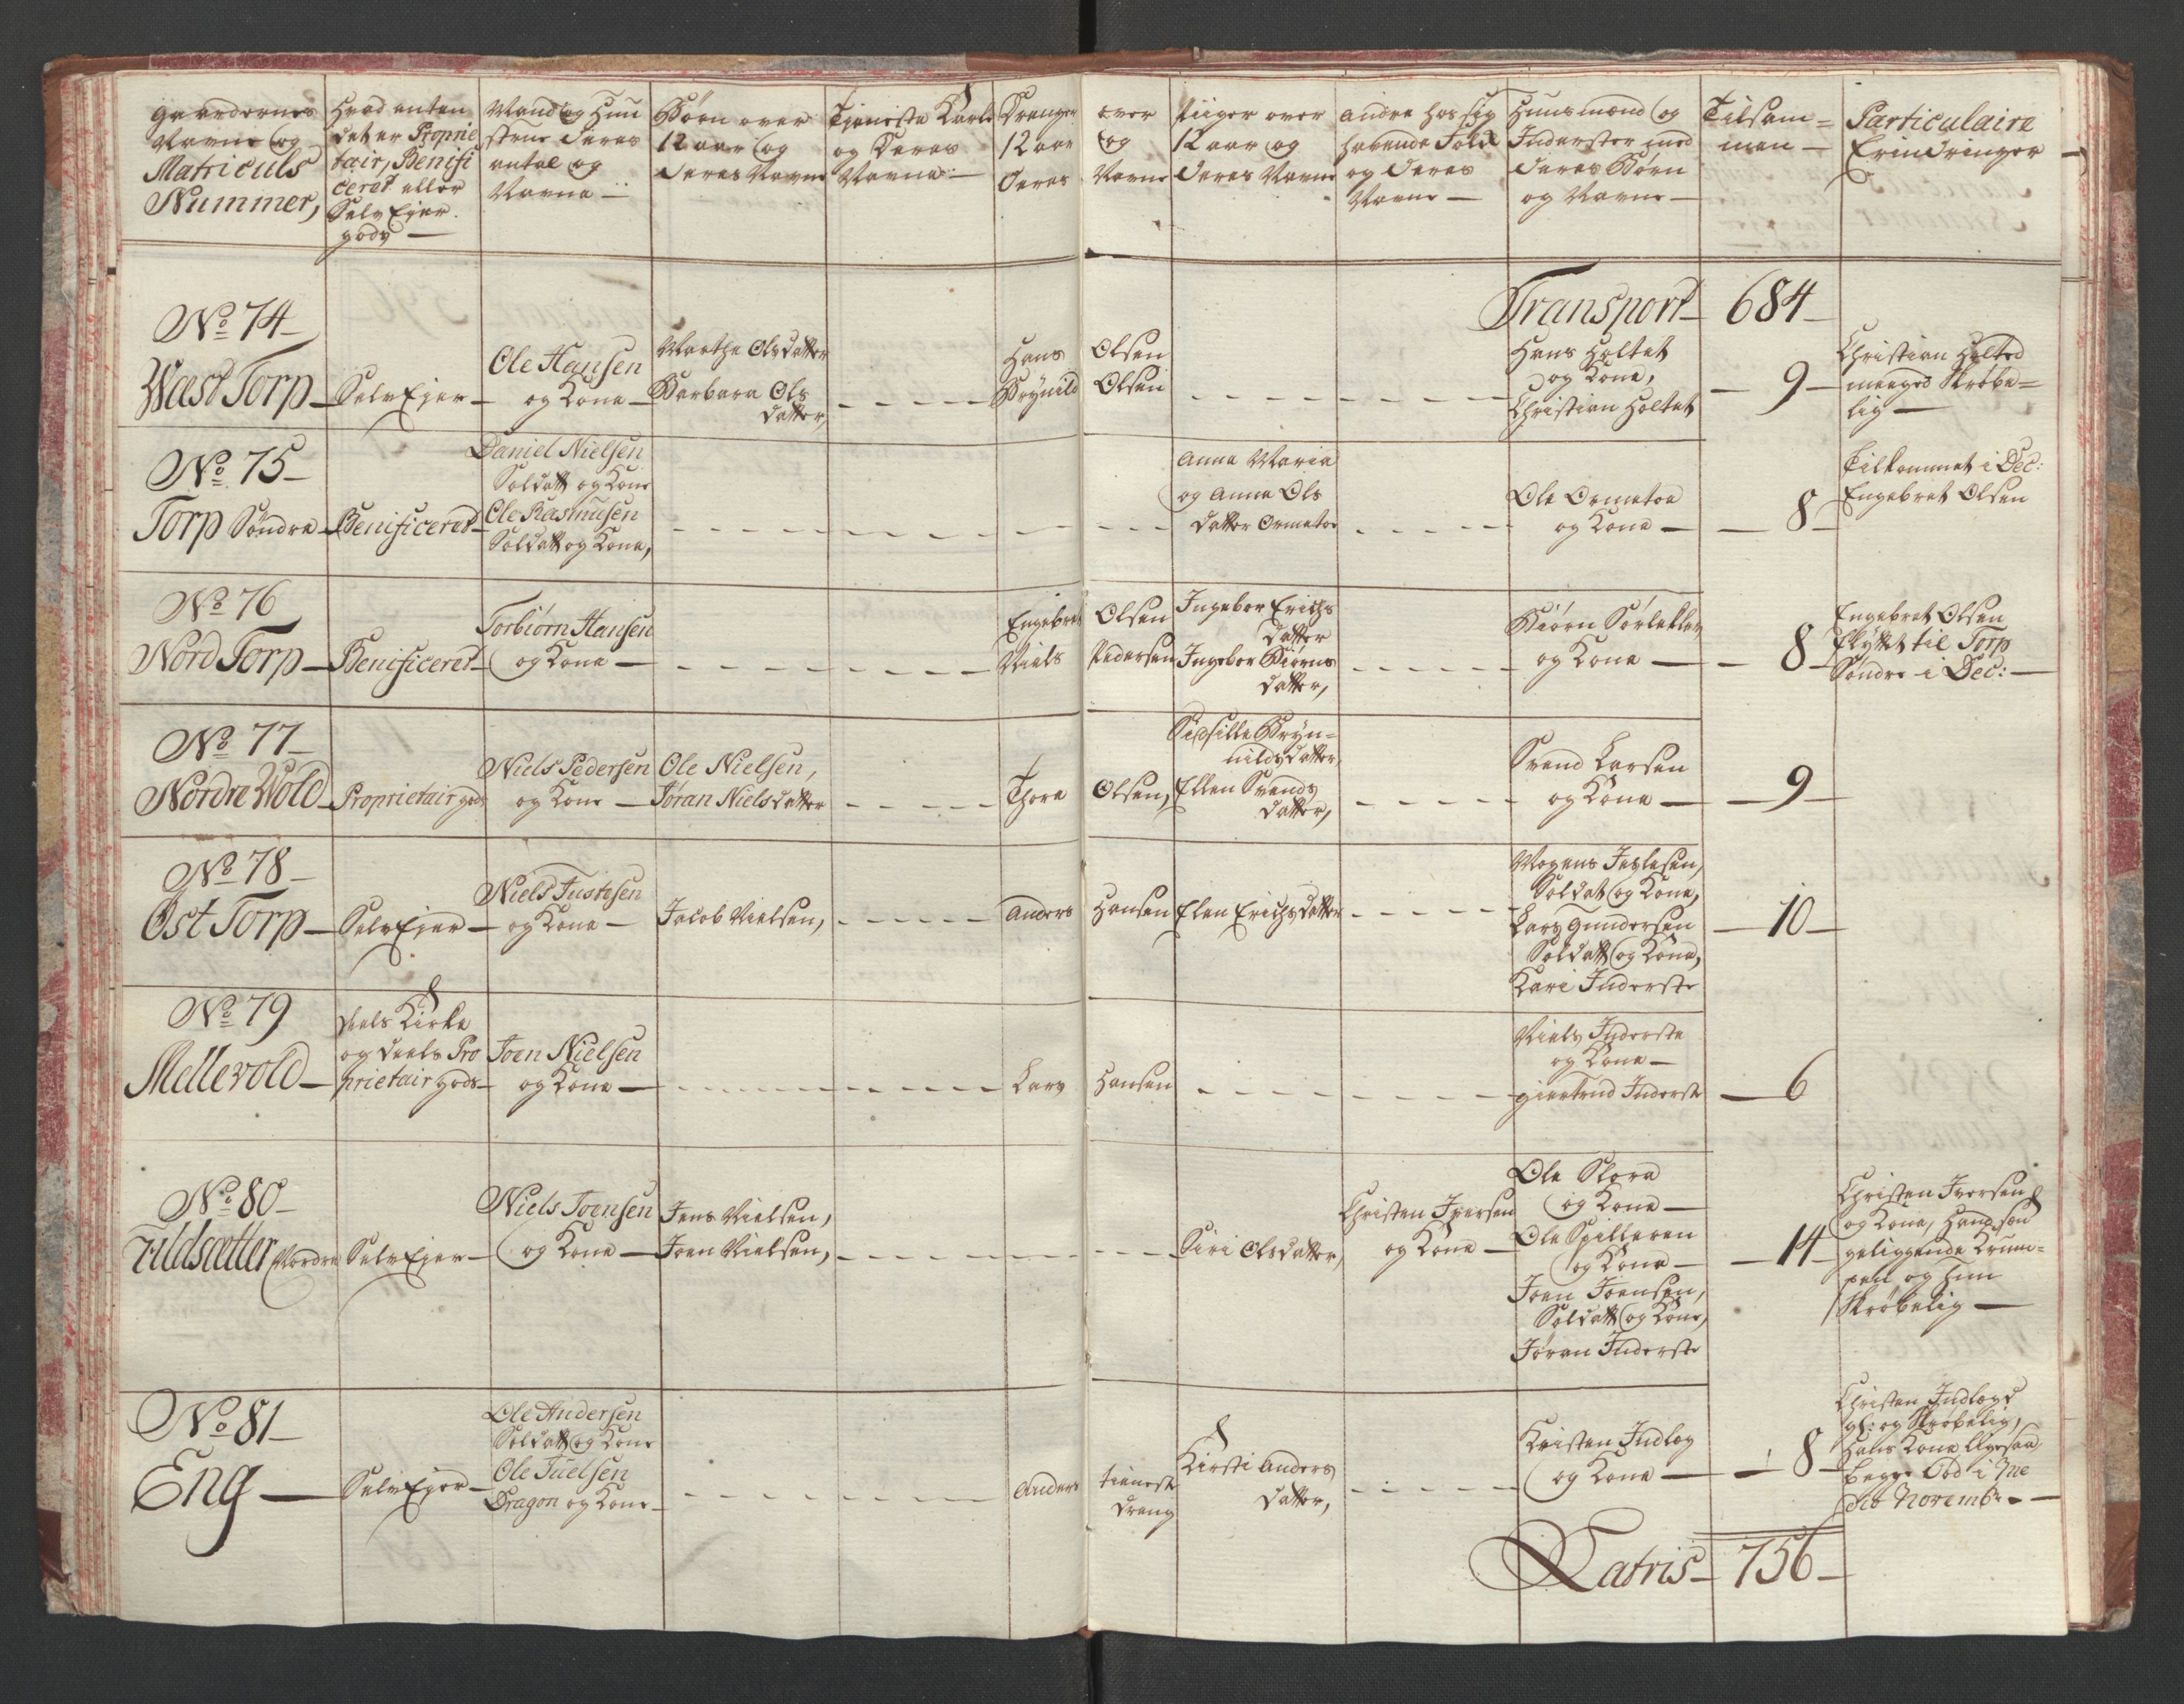 Gaardernes
Navne og
Matriculs
Nummer,
Hvad enten
det er Proprie
tair, Benifi
ceret eller
Selv Ejer
gods —
Mand og Hu
struer deres
antal og
Navne —
Børn over
12 aar og
deres Navne
Tjeneste Karle
og deres
Navne —
Drenge over
12 aar og
deres Navne
Piiger over
12 aar og
deres Navne
andre hos sig
havende Folk
og deres
Navne —
Huusmænd og
Inderster med
deres Børn
og Navne —
Tilsam=
men —
Particulaire
Erindringer —
Transport — 684 —
No 74 —
Wæst Torp —
Selv Ejer —
Ole Hansen
og Kone —
Marthe Olsdatter
Barbara Ols
datter,
Hans Olsen
Brynild Olsen
Hans Holtet
og Kone,
Christian Holtet
— 9 —
Christian Holted
meeged Skrøbe=
lig —
No 75 —
Torp Søndre —
Benificeret —
Daniel Nielsen
Soldatt og Kone
Ole Rasmusen
Soldatt og Kone,
Anna Maria
og Anna Ols
datter Ormetoe
Ole Ormetoe
og Kone —
— 8 —
Tilkommet i Dec:
Engebret Olsen
No 76
Nord Torp —
Benificeret —
Torbiørn Hansen
og Kone —
Engebret Olsen
Niels Pedersen
Ingebor Erichs
datter
Ingebor Biørns
datter,
Biørn Sørlekler
og Kone —
— 8 —
Engebret Olsen
flyttet til Torp
Søndre i Dec: —
No 77 —
Nordre Wold —
Proprietair gods
Niels Pedersen
og Kone —
Ole Nielsen,
Jøran Nielsdatter
Thore Olsen,
Sidsille Bryn=
nildsdatter,
Ellen Svends
datter,
Svend Larsen
og Kone —
— 9 —
No 78 —
Øst Torp —
Selv Ejer —
Niels Justesen
og Kone —
Jacob Nielsen,
Anders Hansen
Elen Erichsdatter
Mogens Jeslesen,
Soldat og Kone,
Lars Gundersen
Soldatt og Kone,
Kari Inderste
— 10 —
No 79
Mellevold —
deels Kirke
og deels Pro
prietair gods —
Joen Nielsen
og Kone —
Lars Hansen
Niels Inderste
og Kone —
giertrud Inderste
— 6
No 80 —
Fildsætter Nordre
Selv Ejer —
Niels Joensen
og Kone —
Jens Nielsen,
Joen Nielsen,
Siri Olsdatter,
Christen Iversen
og Kone —
Ole Skora
og Kone —
Ole Spilleren
og Kone —
Joen Joensen,
Soldatt og Kone,
Jøran Inderste
— 14 —
Christen Iversen
og Kone, hand son
geliggende Krum=
pell og hun
Skrøbelig —
No 81 —
Eng —
Selv Ejer —
Ole Andersen
Soldatt og Kone
Ole Juelsen
Dragon og Kone —
Anders tieneste
dreng
Kirsti Anders
datter,
Kristen Indlog
og Kone —
— 8 —
Christen Indlogd
gl: og Skrøbelig,
Hans Kone ligesaa
begge død i Me
dio Novembr. —
Latris — 756 —